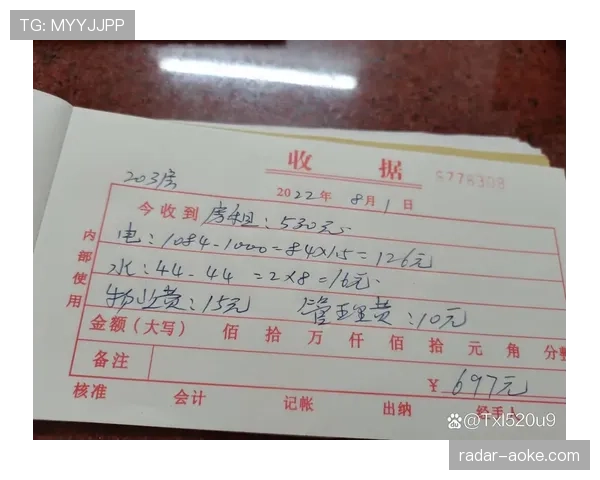 TG: MYYJJPP
收 据
203房
2022年 8月1日
今收到 房租:530元
电:1084-1000=84×1.5=126元
水:44-44 =2×8=16元
物业费:15元 管理费:10元
内部使用
金额(大写) 佰 拾 万 仟 佰 拾 元 角 分整
备注
¥ 697元
核准 会计 记帐 出纳 经手人
@Txl520u9
radar-aoke.com